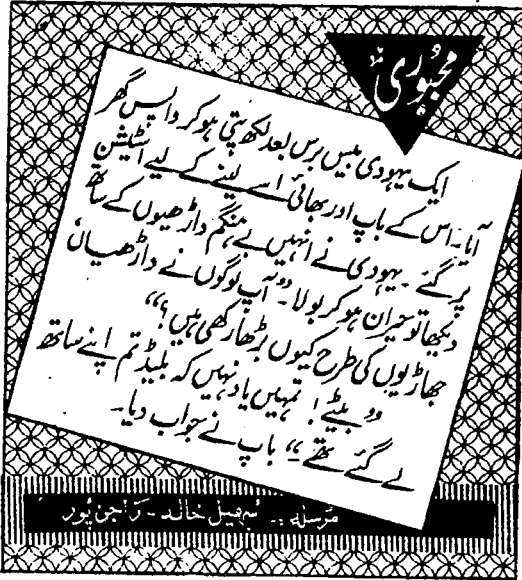 مجبوری
ایک یہودی بیس برس بعد لکھ پتی ہوکر واپس گھر
آیا۔ اس کے باپ اور بھائی اسے لینے کے لیے اسٹیشن
پر گئے۔ یہودی نے انہیں بے ہنگم داڑھیوں کے ساتھ
دیکھا تو حیران ہوکر بولا۔ ”آپ لوگوں نے داڑھیاں
جھاڑیوں کی طرح کیوں بڑھا رکھی ہیں؟“
”بیٹے! تمہیں یاد نہیں کہ بلیڈ تم اپنے ساتھ
لے گئے تھے۔“ باپ نے جواب دیا۔
مرسلہ:۔ سہیل خالد۔ راجن پور